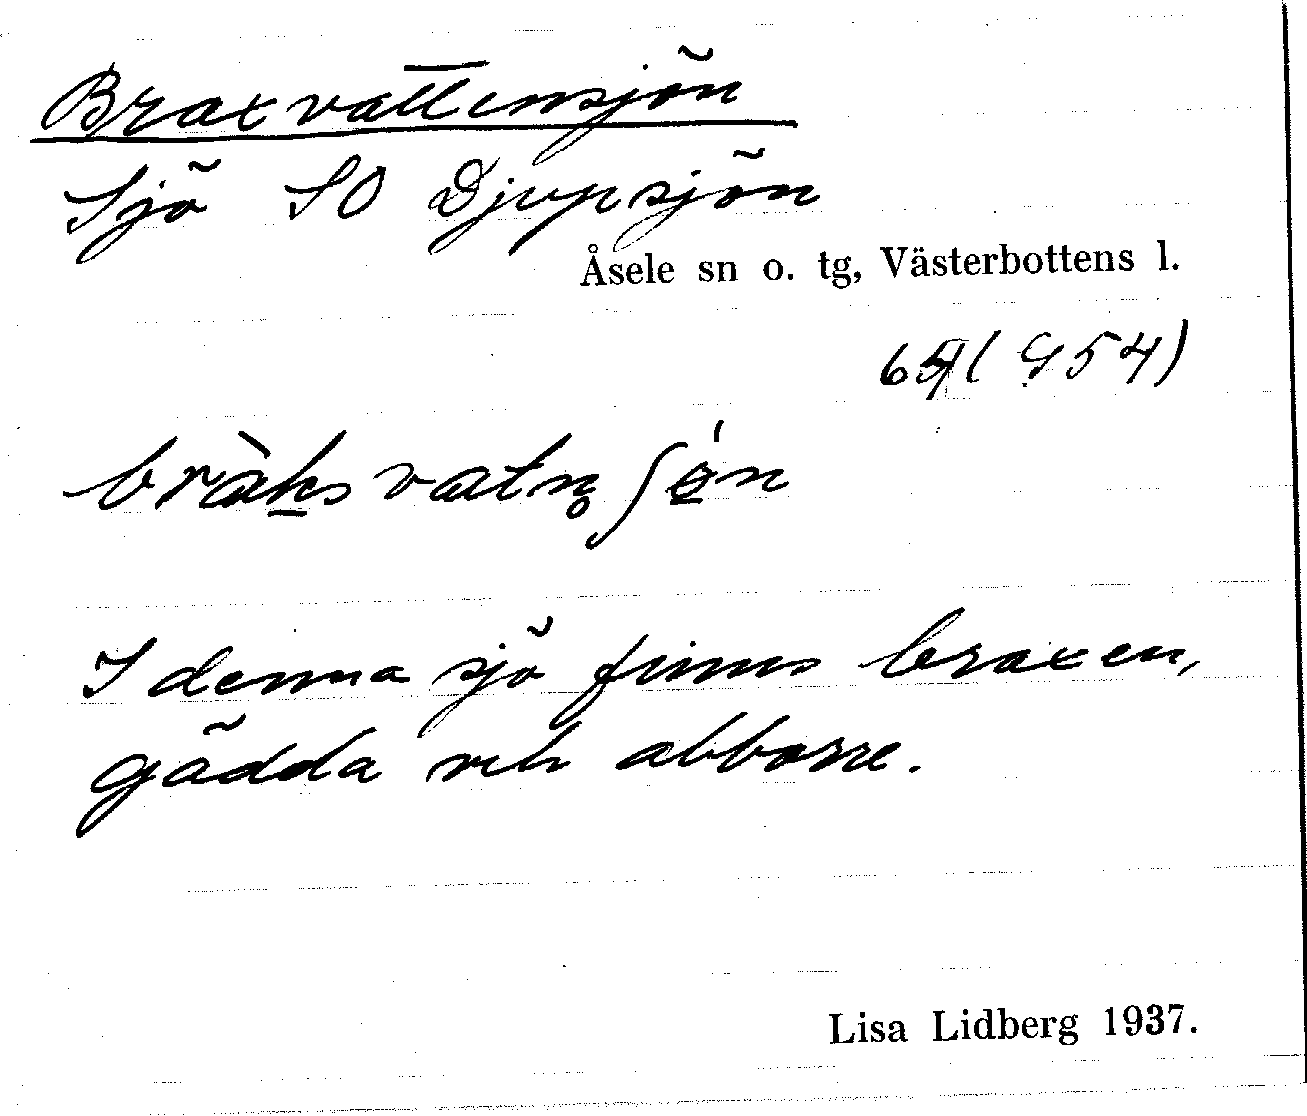 Braxvattensjön
Sjö SO Djupsjön
Åsele sn o. tg, Västerbottens l.
bràksvatn̥ ʃǿn
I denna sjö finns braxen,
gädda och abborre.
Lisa Lidberg 1937.